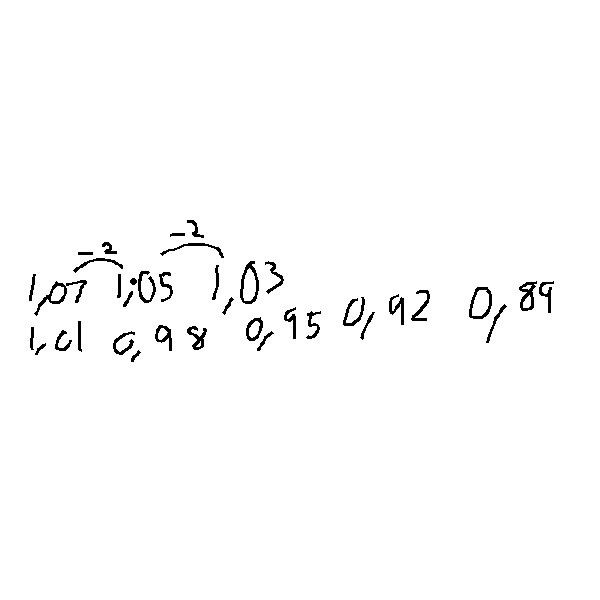 -2 -2
1,07 1,05 1,03
1,01 0,98 0,95 0,92 0,89